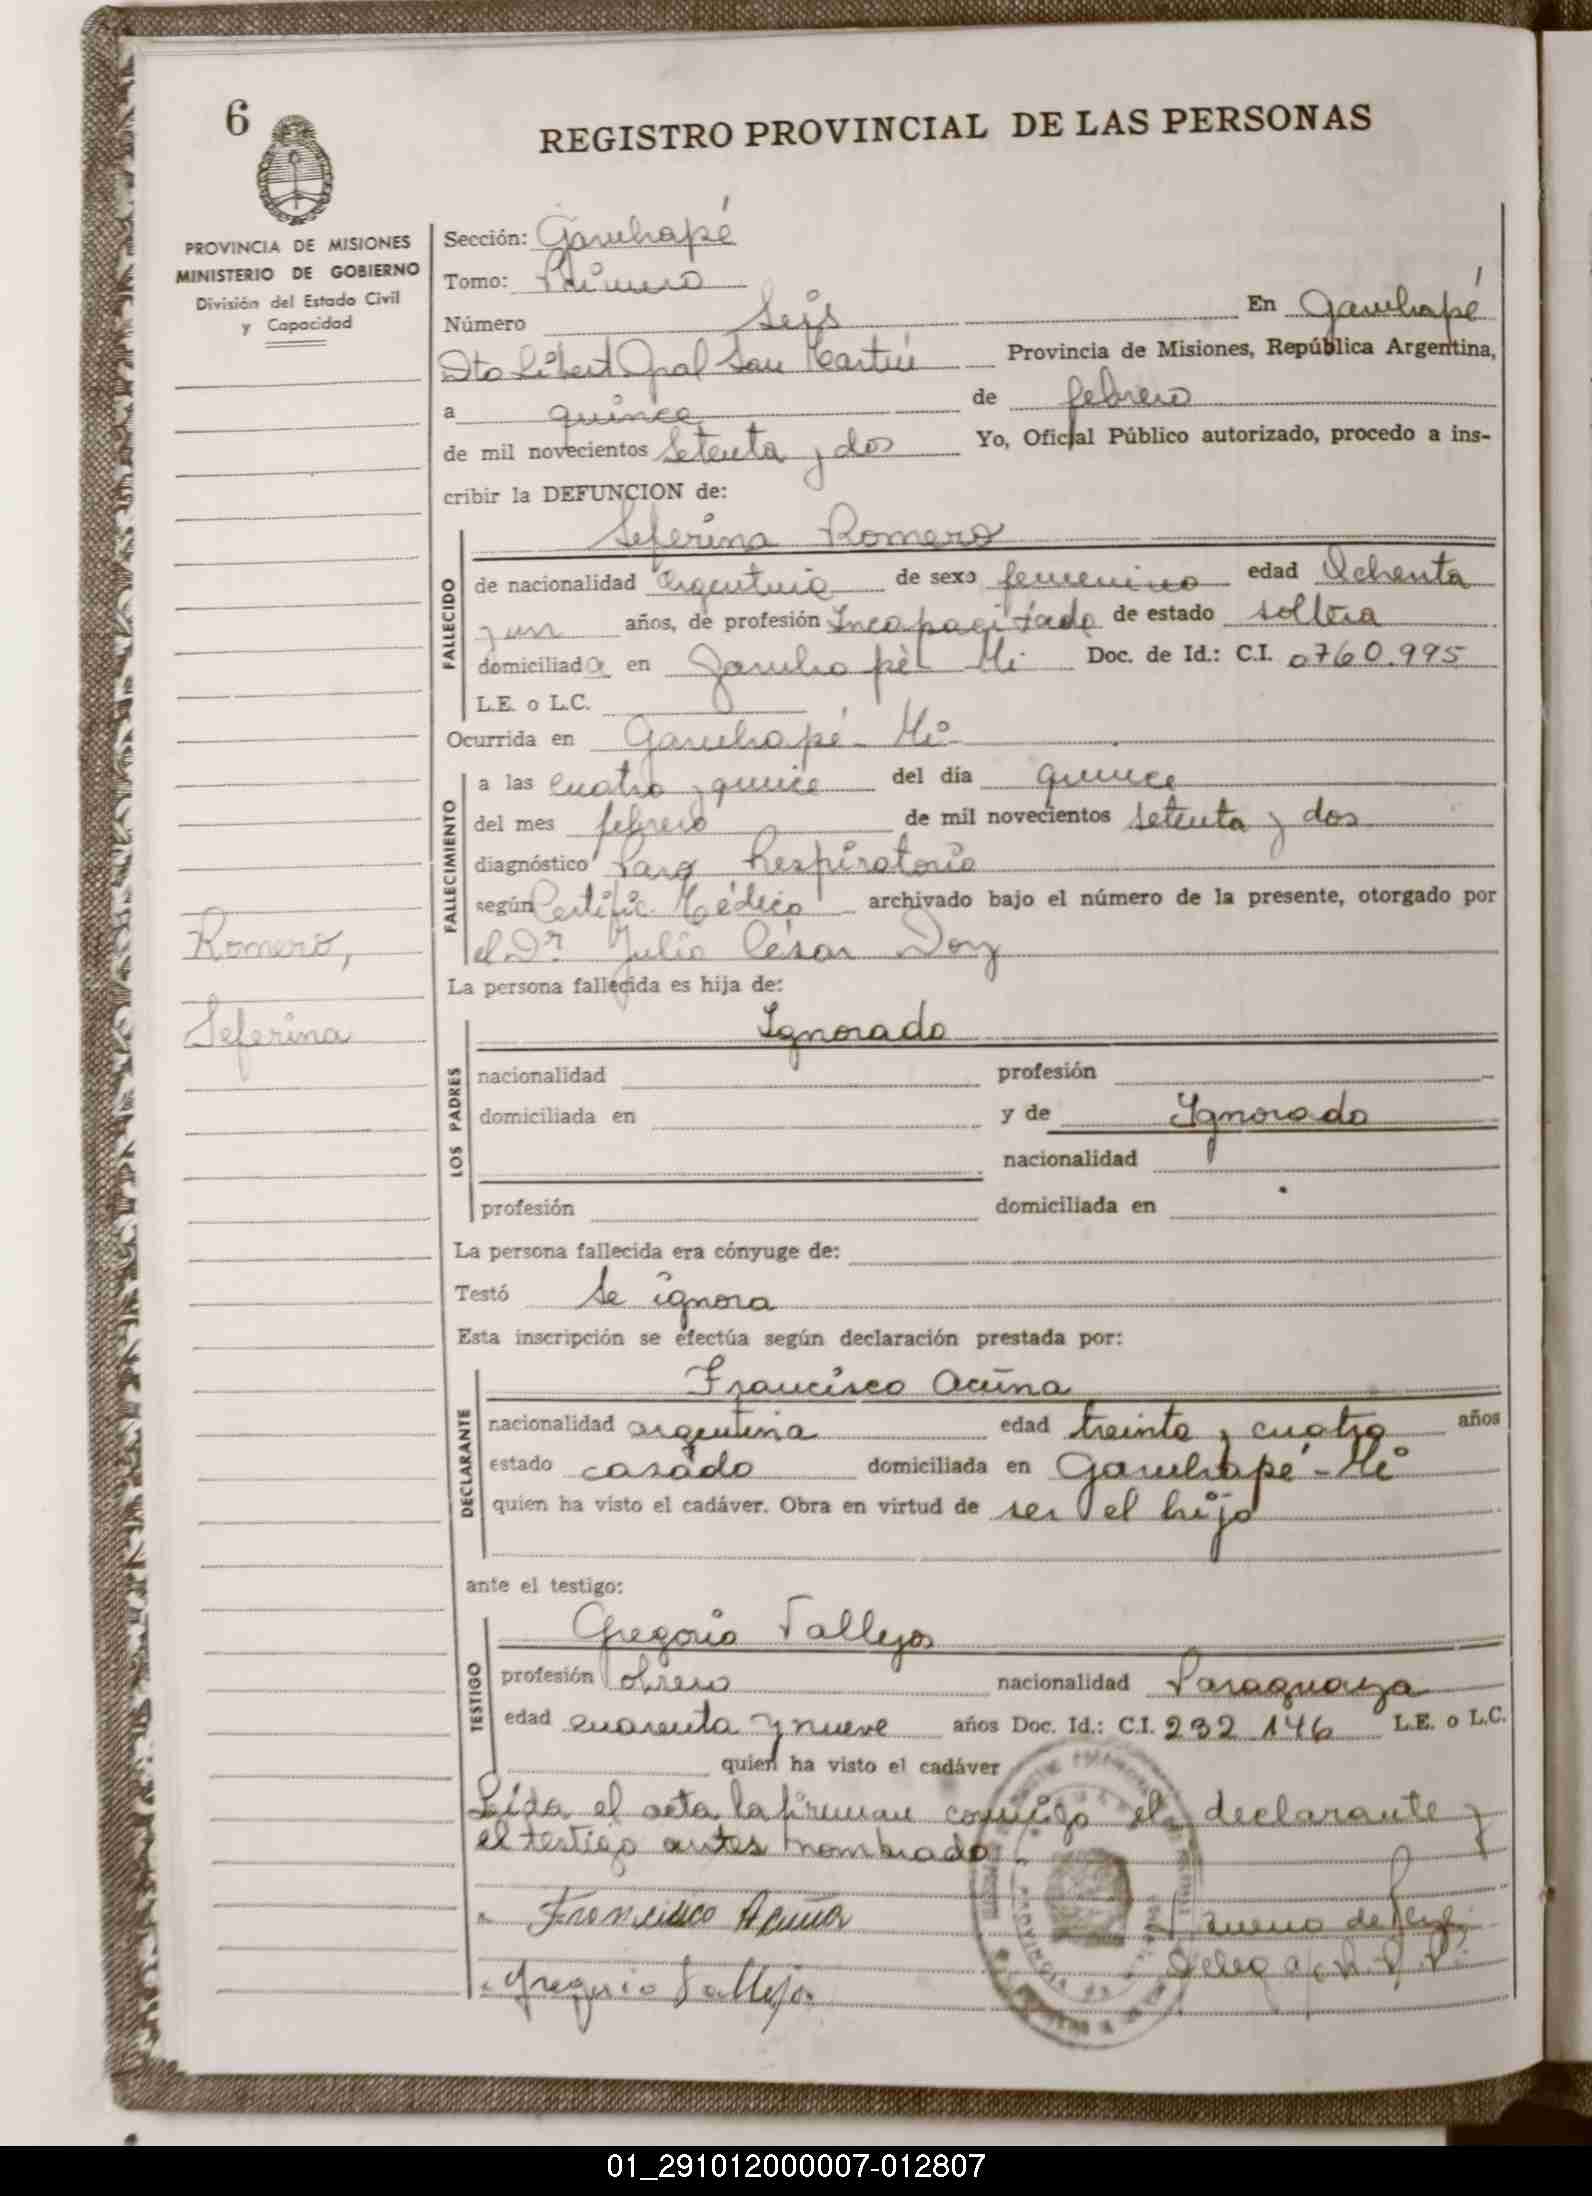 6
REGISTRO PROVINCIAL DE LAS PERSONAS
PROVINCIA DE MISIONES
MINISTERIO DE GOBIERNO
División del Estado Civil
y Capacidad
Sección: Garuhapé
Tomo: Primero
Número Seis En Garuhapé
Dto Libert Gral San Martín Provincia de Misiones, República Argentina,
a quince de febrero
de mil novecientos setenta y dos Yo, Oficial Público autorizado, procedo a ins-
cribir la DEFUNCION de:
Seferina Romero
FALLECIDO
de nacionalidad argentina de sexo femenino edad Ochenta
y un años, de profesión Incapacitada de estado soltera
domiciliada en Garuhapé Mi Doc. de Id.: C.I. 0760.995
L.E. o L.C.
Ocurrida en Garuhapé - Mi
FALLECIMIENTO
a las cuatro y quince del día quince
del mes febrero de mil novecientos setenta y dos
diagnóstico Paro Respiratorio
según Certific. Médico archivado bajo el número de la presente, otorgado por
el Dr. Julio César
Romero,
Seferina
La persona fallecida es hija de:
Ignorado
LOS PADRES
nacionalidad profesión
domiciliada en y de Ignorado
nacionalidad
profesión domiciliada en
La persona fallecida era cónyuge de:
Testó Se ignora
Esta inscripción se efectúa según declaración prestada por:
Francisco Acuña
DECLARANTE
nacionalidad argentina edad treinta y cuatro años
estado casado domiciliada en Garuhapé - Mi
quien ha visto el cadáver. Obra en virtud de ser el hijo
ante el testigo:
Gregorio Vallejos
TESTIGO
profesión obrero nacionalidad Paraguaya
edad cuarenta y nueve años Doc. Id.: C.I. 232 146 L.E. o L.C.
quien ha visto el cadáver
Leída el acta la firman conmigo el declarante y
el testigo antes nombrado.
Francisco Acuña
Gregorio Vallejos
01_291012000007-012807